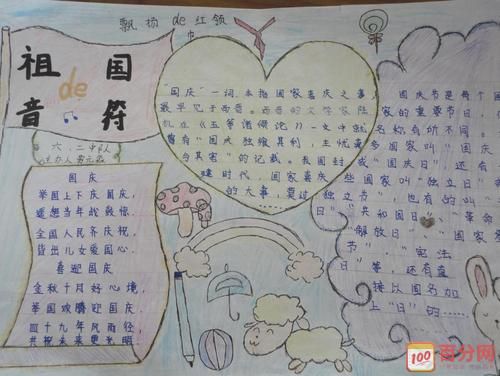 飘扬de红领
巾
祖国
de
音符
六、二中队
国庆
举国上下庆国庆，
遥想当年战鼓惊。
全国人民齐庆祝，
皆出儿女爱国心。
喜迎国庆
金秋十月好心境，
举国欢腾迎国庆。
四十九年风雨径，
共祝未来更光明。
"国庆"一词，本指国家喜庆之事，
最早见于西晋。西晋的文学家陆
机在《五等诸侯论》一文中就
曾有"国庆独飨其利，主忧莫
与其害"的记载。我国封
建时代，国家喜庆
的大事，莫过
国庆节是每个国
家的重要节日，
名称有所不同。
多国家叫"国庆
或"国庆日"，还有
些国家叫"独立日"
独立节"，也有的叫"
日"、"共和国日"、"革命
"解放日"、"国家
节"、"宪法
日"等，还有直
接以国名加
上"日"的……
100
百分网